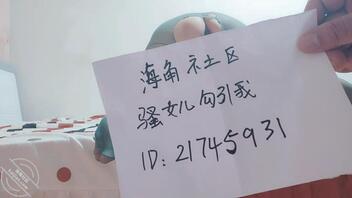 海角社区
骚女儿勾引我
ID: 21745931